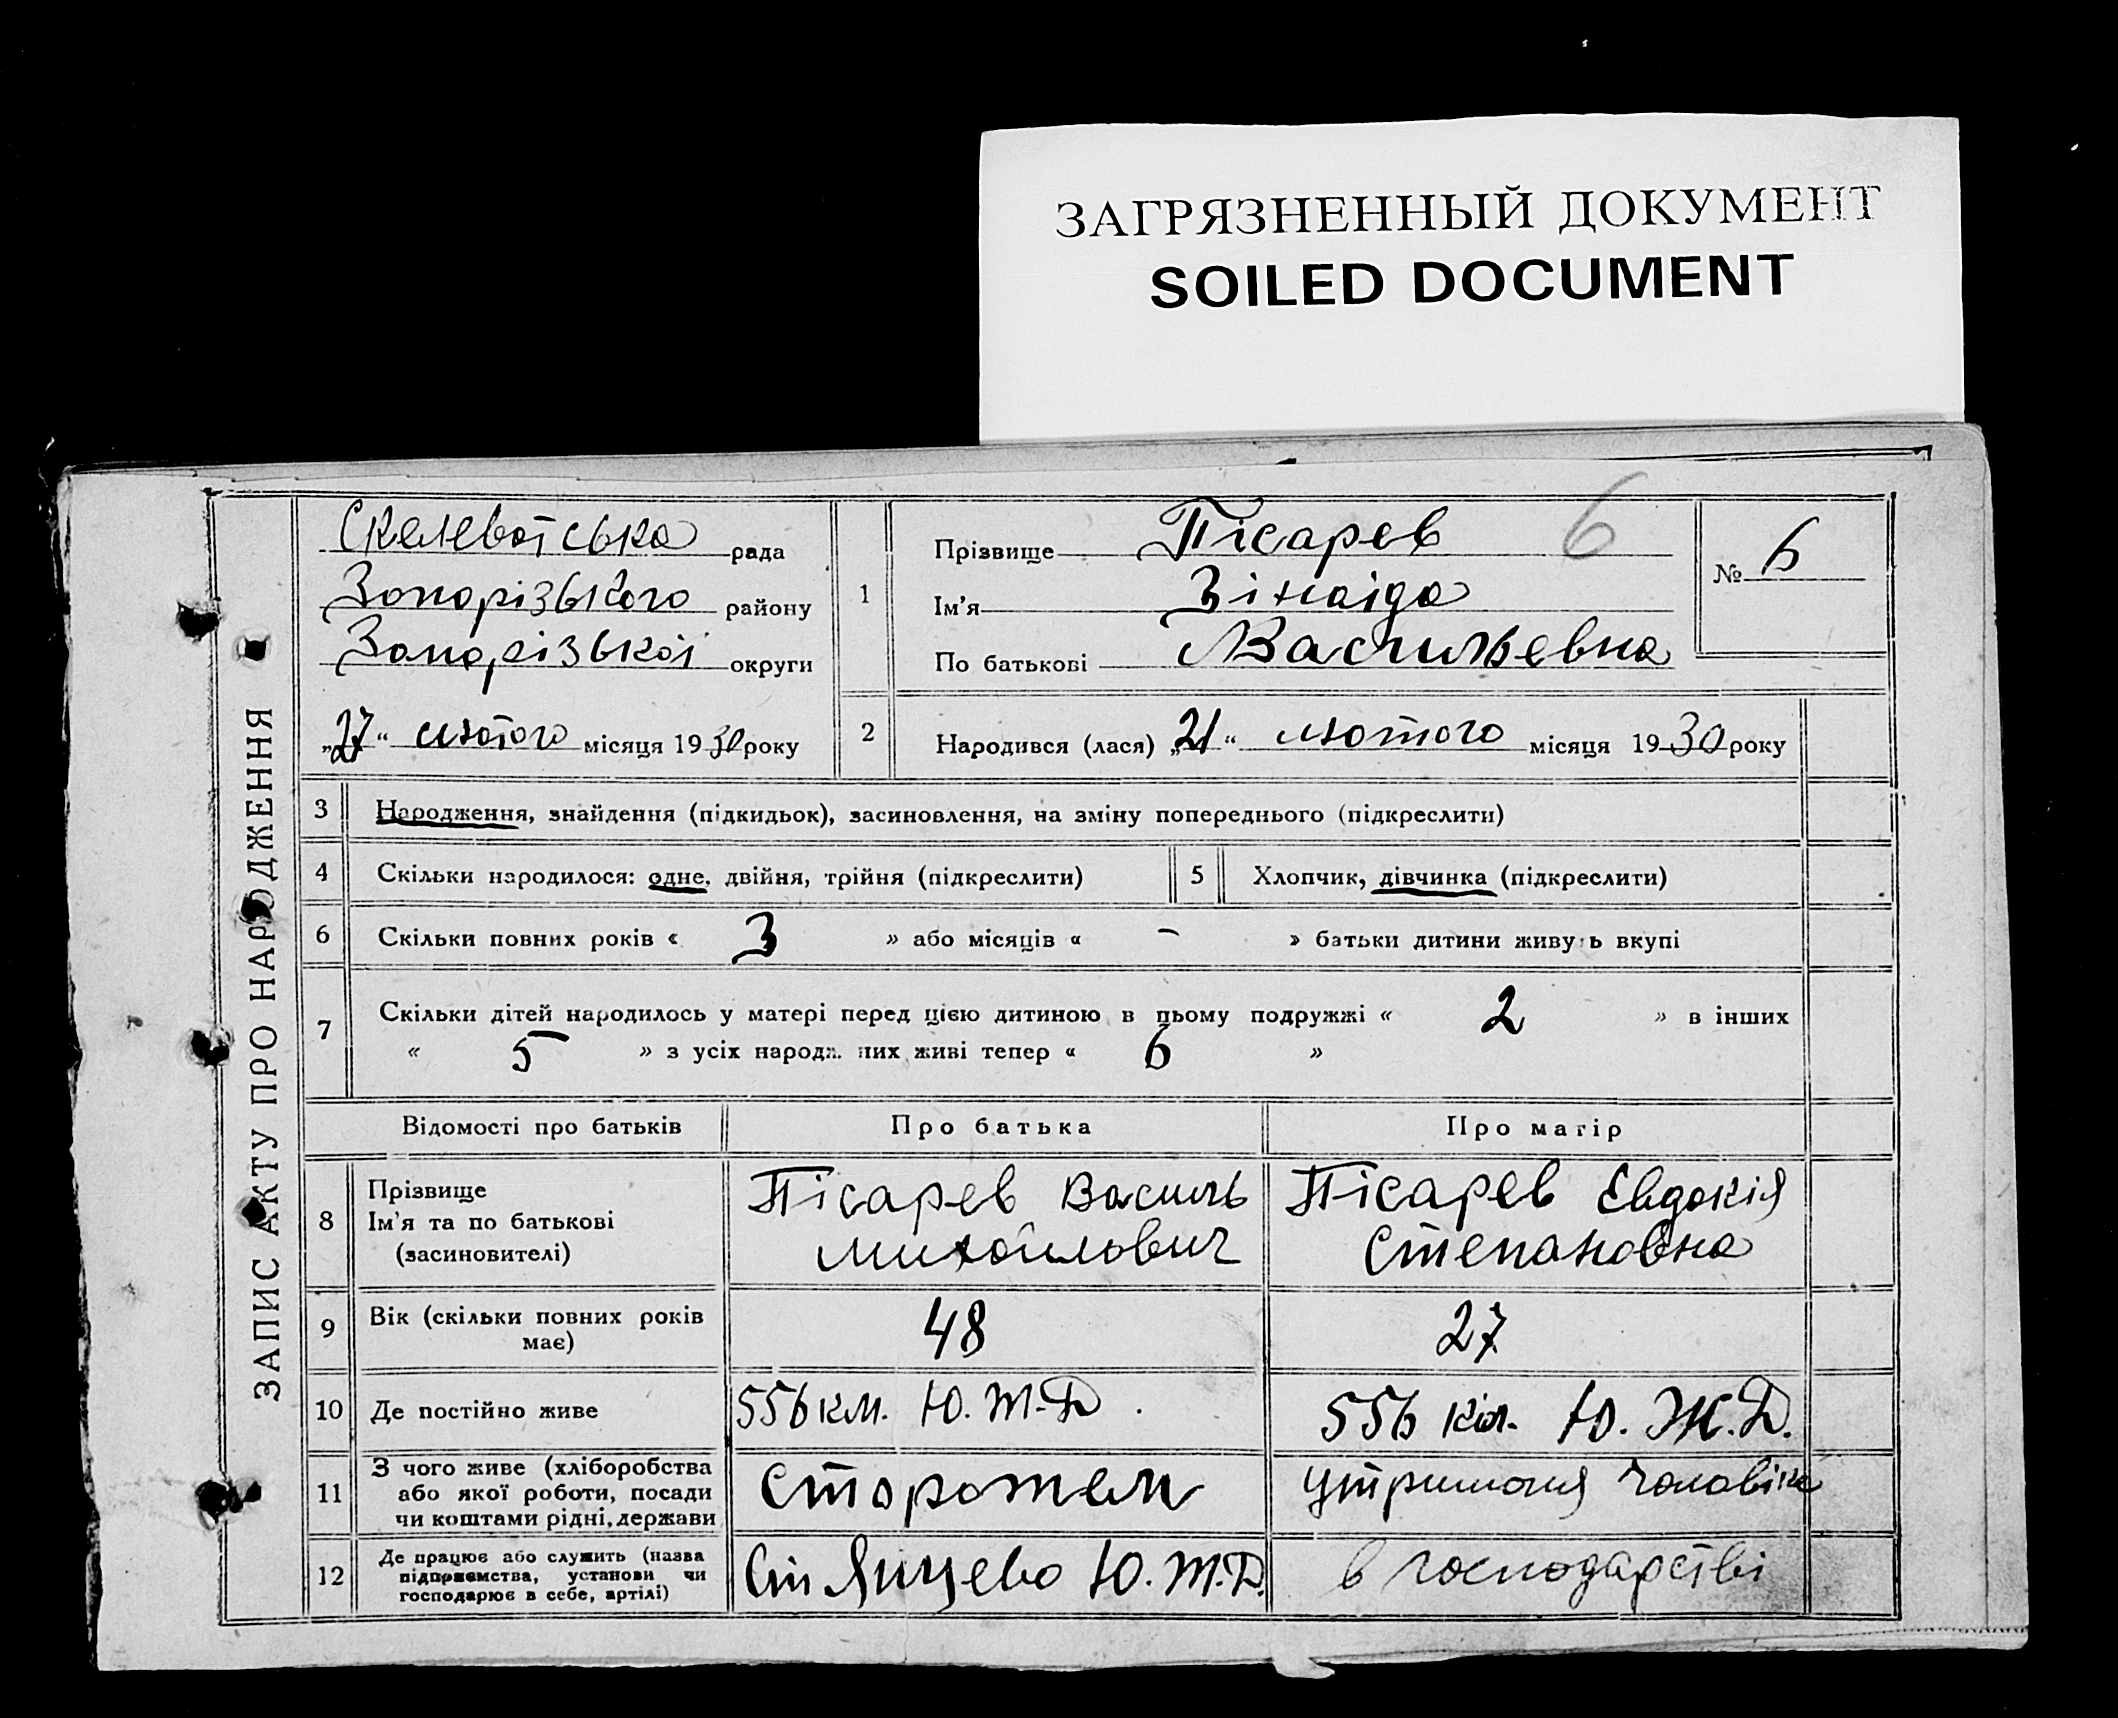 ЗАГРЯЗНЕННЫЙ ДОКУМЕНТ
SOILED DOCUMENT
ЗАПИС АКТУ ПРО НАРОДЖЕННЯ
Скелеватська рада
Запорізького району
Запорізької округи
„27“ лютого місяця 1930 року
1
Прізвище Пісарев 6
Ім'я Зінаіда
По батькові Васильевна
№ 6
2 Народився (лася) „21“ лютого місяця 1930 року
3 Народження, знайдення (підкидьок), засиновлення, на зміну попереднього (підкреслити)
4 Скільки народилося: одне, двійня, трійня (підкреслити) 5 Хлопчик, дівчинка (підкреслити)
6 Скільки повних років « 3 » або місяців « – » батьки дитини живуть вкупі
7 Скільки дітей народилось у матері перед цією дитиною в цьому подружжі « 2 » в інших
« 5 » з усіх народж. них живі тепер « 6 »
Відомості про батьків Про батька Про матір
8 Прізвище
Ім'я та по батькові
(засиновителі)
Пісарев Василь
Михайлович
Пісарев Евдокія
Степановна
9 Вік (скільки повних років
має)
48 27
10 Де постійно живе 556 км. Ю. Ж.Д. 556 кіл. Ю. Ж.Д.
11 З чого живе (хліборобства
або якої роботи, посади
чи коштами рідні, держави
Сторожем утриманя чоловіка
12 Де працює або служить (назва
підприемства, установи чи
господарює в себе, артілі)
Ст Янцево Ю.Ж.Д. в господарстві